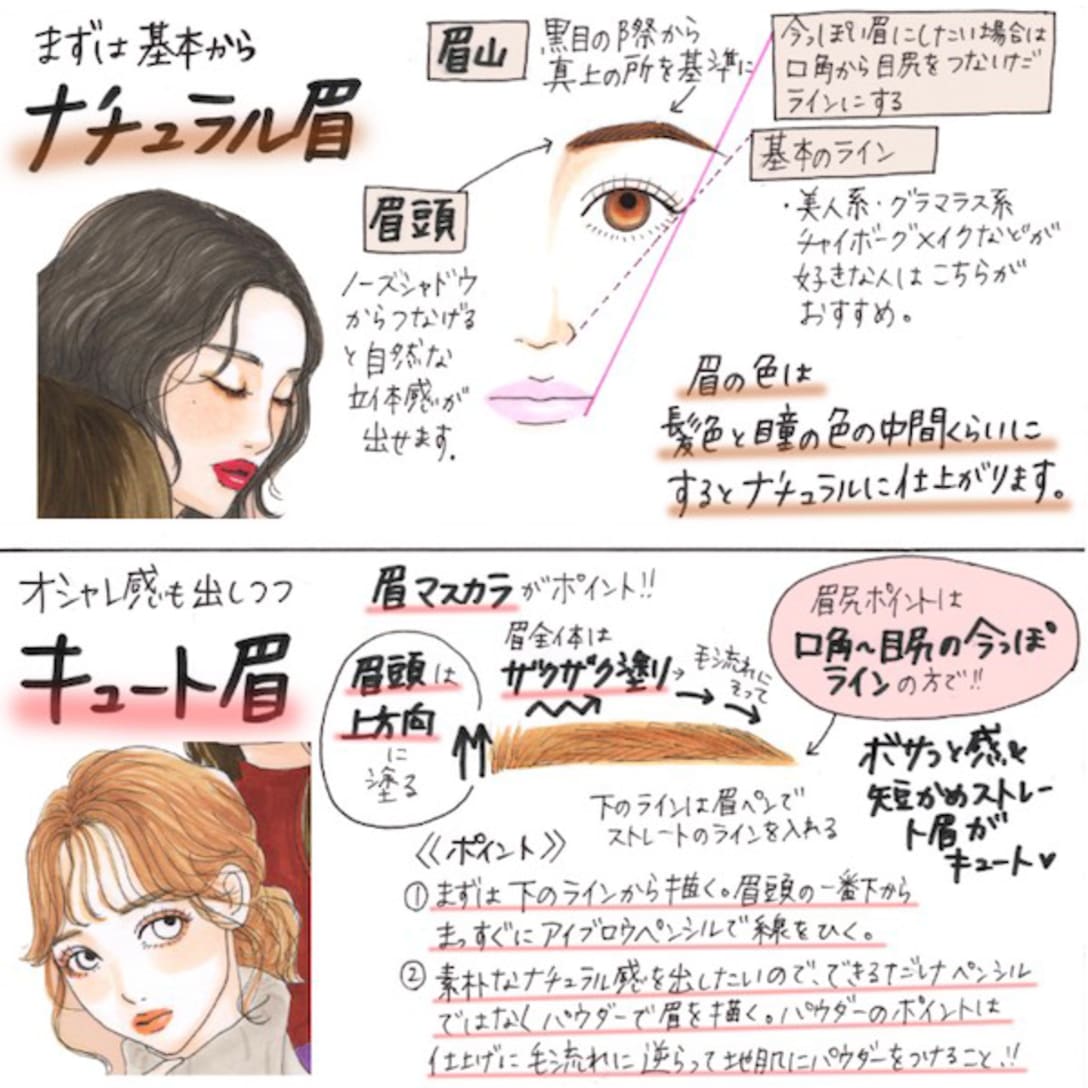 まずは基本から
ナチュラル眉
眉山
黒目の際から
真上の所を基準に
今っぽい眉にしたい場合は
口角から目尻をつないだ
ラインにする
基本のライン
・美人系・グラマラス系
チャイボーグメイクなどが
好きな人はこちらが
おすすめ。
眉頭
ノーズシャドウ
からつなげる
と自然な
立体感が
出せます。
眉の色は
髪色と目瞳の色の中間くらいに
するとナチュラルに仕上がります。
オシャレ感も出しつつ
キュート眉
眉マスカラがポイント!!
眉頭は
上方向
に
塗る
眉全体は
ザクザク塗り
毛流れに
そって
眉尻ポイントは
口角〜目尻の今っぽ
ラインの方で!!
下のラインは眉ペンで
ストレートのラインを入れる
ボサっと感&
短かめストレー
ト眉が
キュート♥
《ポイント》
① まずは下のラインから描く。眉頭の一番下から
まっすぐにアイブロウペンシルで線をひく。
② 素朴なナチュラル感を出したいので、できるだけペンシル
ではなくパウダーで眉を描く。パウダーのポイントは
仕上げに毛流れに逆らって地肌にパウダーをつけること!!